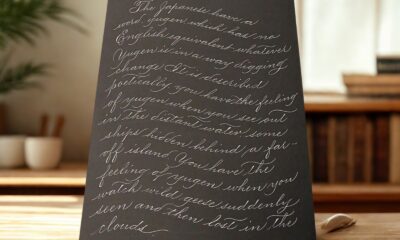 The Japanese have a
word yugen which has no
English equivalent whatever
Yugen is in a way digging
change It is described
poetically you have the feeling
of yugen when you see out
in the distant water some
ships hidden behind a far-
off island You have the
feeling of yugen when you
watch wild geese suddenly
seen and then lost in the
clouds